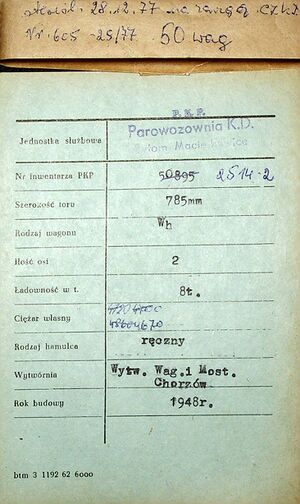 28.12.77 na
Nr. 605-25/77 50 wag
P.K.P.
Jednostka służbowa Parowozownia K.D.
Bytom Maciejkowice
Nr inwentarza PKP 50895 2514-2
Szerokość toru 785mm
Rodzaj wagonu Wh
Ilość osi 2
Ładowność w t. 8t.
Ciężar własny
Rodzaj hamulca ręczny
Wytwórnia Wytw. Wag.i Most.
Chorzów
Rok budowy 1948r.
btm 3 1192 62 6000